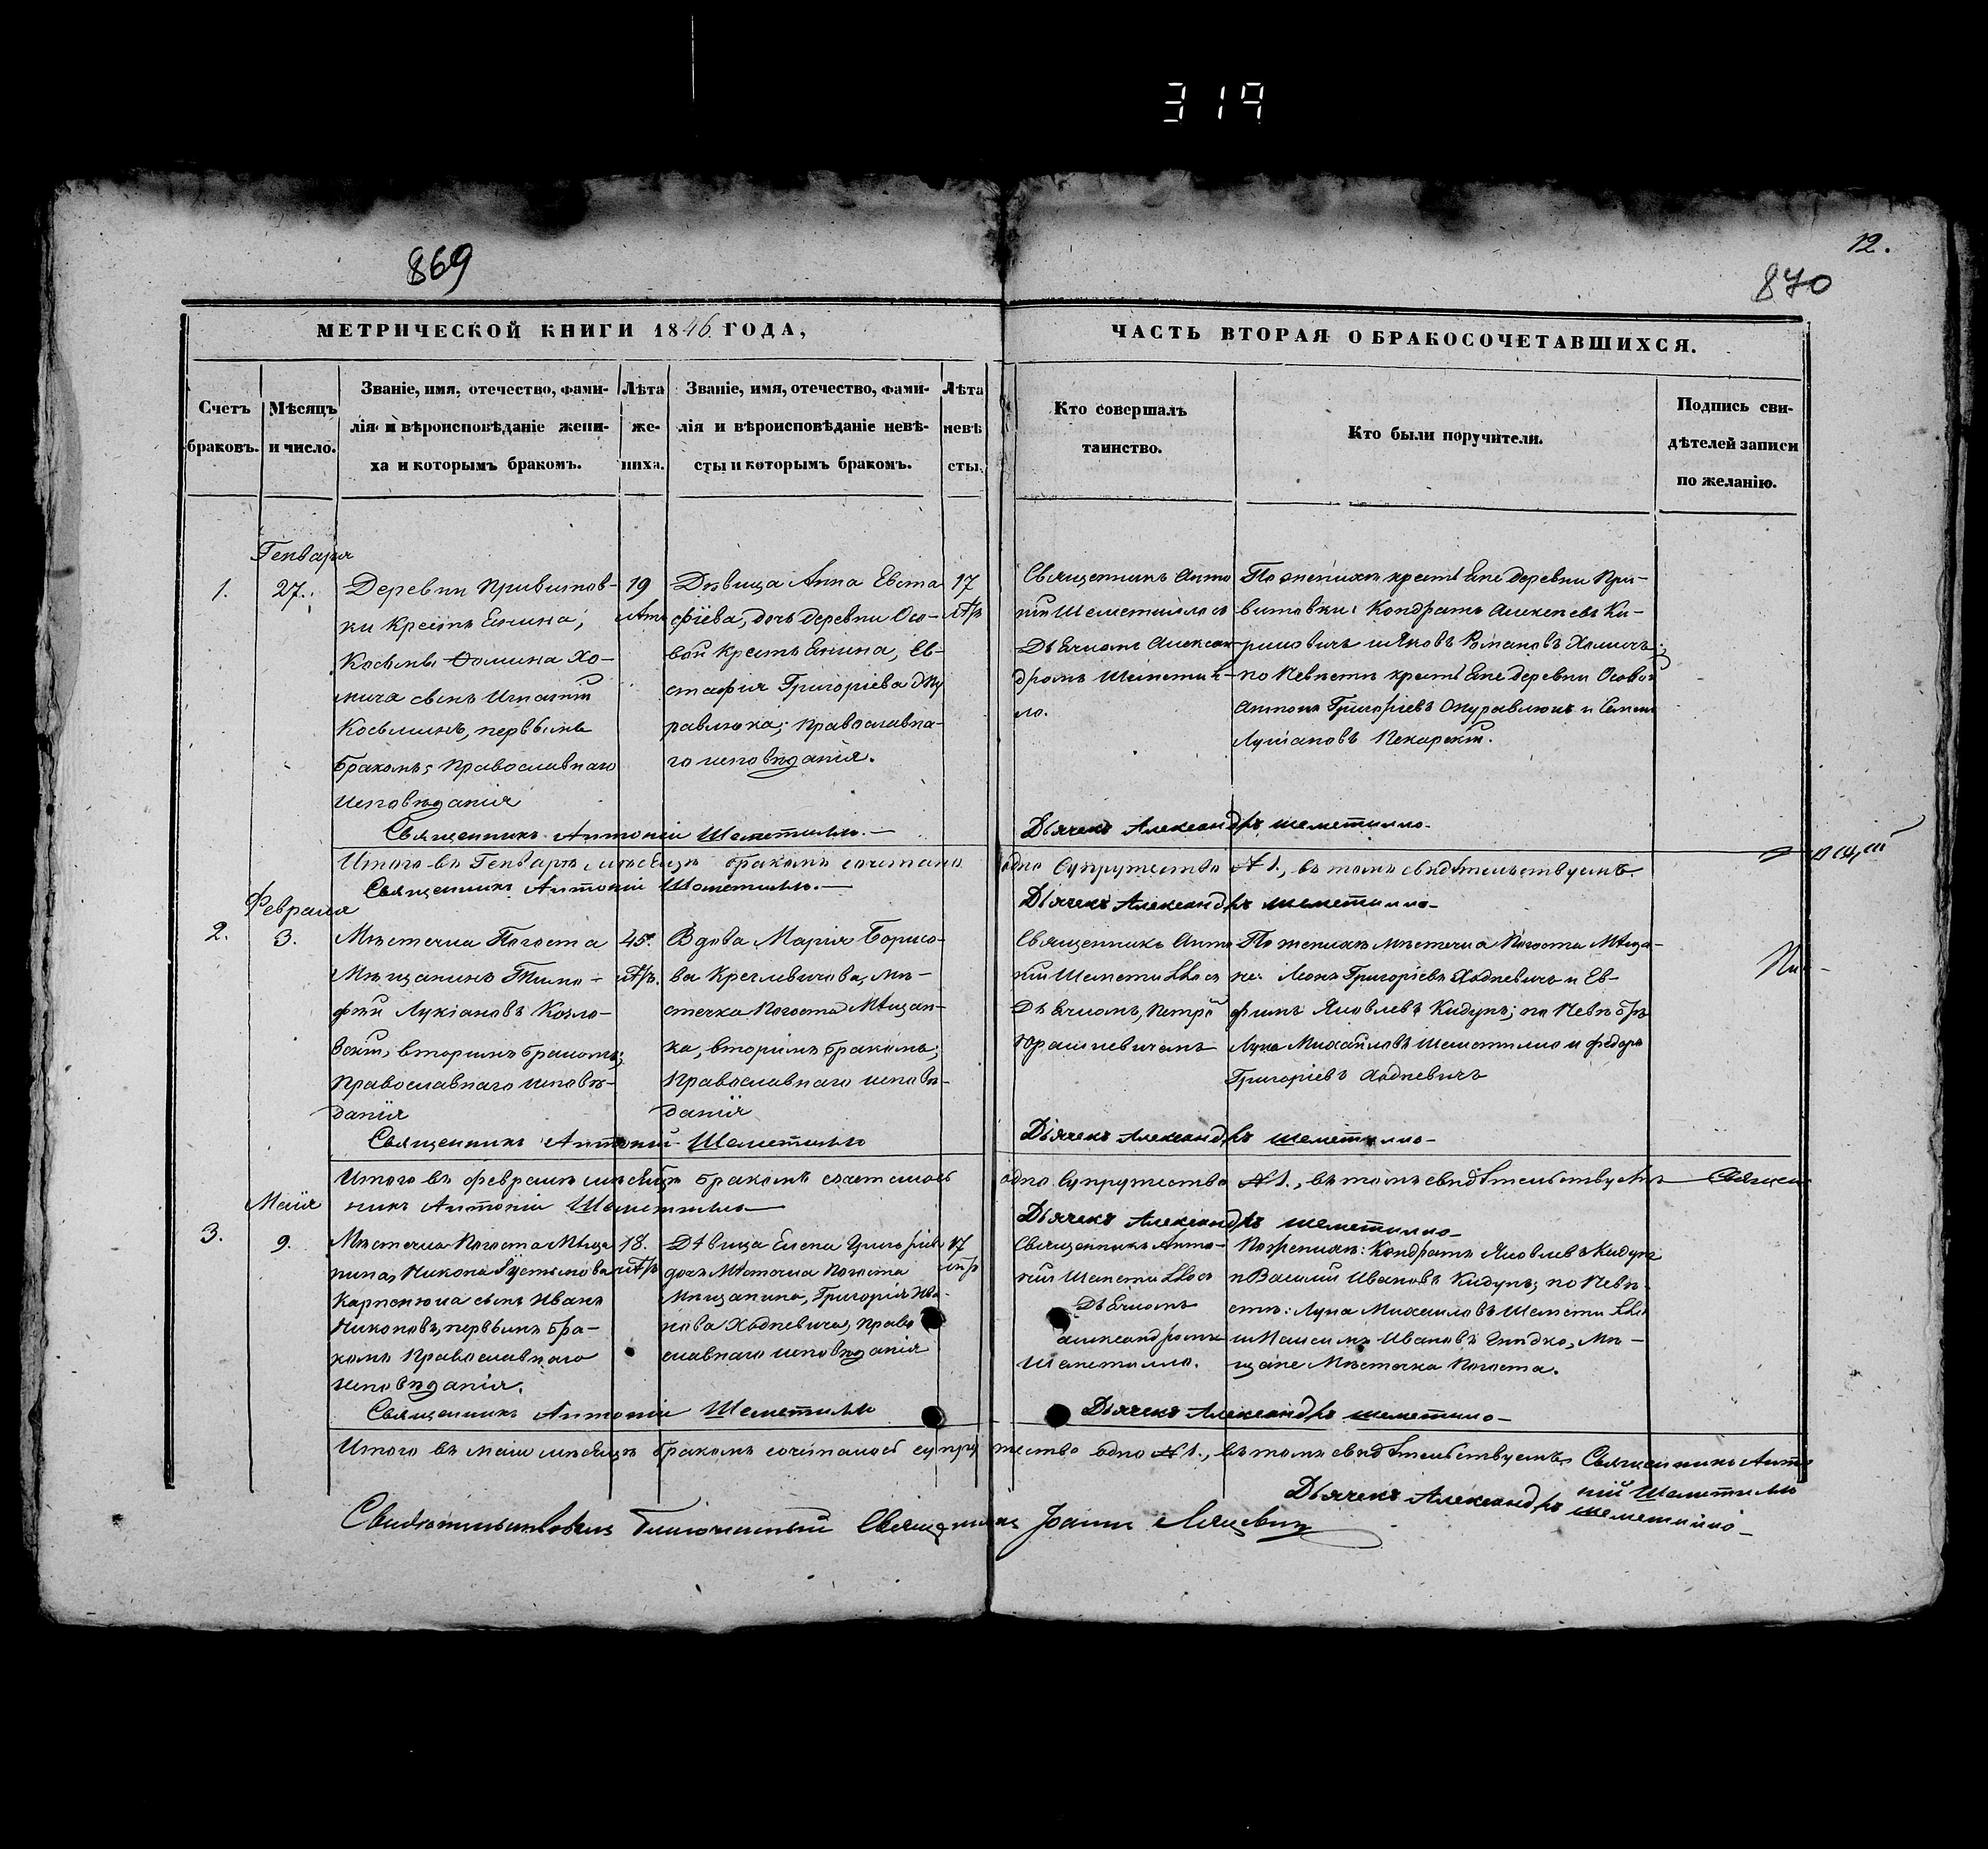 319
869
12.
870
МЕТРИЧЕСКОЙ КНИГИ 1846 ГОДА,
ЧАСТЬ ВТОРАЯ О БРАКОСОЧЕТАВШИХСЯ.
Счетъ
браковъ.
Мѣсяцъ
и число.
Званіе, имя, отечество, фами-
лія и вѣроисповѣданіе жени-
ха и которымъ бракомъ.
Лѣта
же-
ниха.
Званіе, имя, отечество, фами-
лія и вѣроисповѣданіе невѣ-
сты и которымъ бракомъ.
Лѣта
невѣ
сты.
Кто совершалъ
таинство.
Кто были поручители.
Подпись сви-
дѣтелей записи
по желанію.
Генваря
1.
27.
Деревни Привитов-
ки
Косьмы Фомина Хо-
мича сынъ Игнатій
Косьминъ, первымъ
бракомъ; Православнаго
исповѣданія
19
Дѣвица Анна Евста
фіева, дочь деревни Осо-
вой
стафія Григоріева
равлюка; Православна-
го исповѣданія.
17
лѣтъ
Священникъ Анто
ній Шеметилло съ
Дьячкомъ Алексан-
дромъ Шемети-
ло.
По женихѣ деревни При-
витовки: Кондратъ Алексѣевъ Ки-
риловичъ и Яковъ Романовъ Хомичъ;
по невѣстѣ деревни Осовой
Антонъ Григоріевъ и
Священникъ Антоній Шеметилло.
Дьячекъ Александръ Шеметилло
Итого въ Генварѣ мѣсяцѣ бракомъ сочетано одно супружество №1., въ томъ свидѣтельствуемъ.
Священникъ Антоній Шеметилло.
Дьячекъ Александръ Шеметилло
Февраля
2.
3.
Мѣстечка Погоста
Мѣщанинъ Тимо-
фей Лукіановъ Козло-
вскій, вторымъ бракомъ;
Православнаго исповѣ-
данія
45.
лѣтъ.
Вдова Марія Борисо-
ва мѣ-
стечка Погоста Мѣщан-
ка, вторымъ бракомъ;
Православнаго исповѣ-
данія
Священникъ Анто
ній Шеметилло съ
Дьячкомъ, Петромъ
Юрашкевичемъ
По женихѣ мѣстечка Погоста Мѣща-
не: Леонъ Григоріевъ Ходневичъ и Ев-
фимъ Яковлевъ Кидунъ; по
Лука Михайловъ Шеметилло и Федоръ
Григоріевъ Ходневичъ
Священникъ Антоній Шеметилло
Дьячекъ Александръ Шеметилло
Итого въ февралѣ мѣсяцѣ бракомъ сочеталось одно супружество №1., въ томъ свидѣтельствуемъ Священ
никъ Антоній Шеметилло
Дьячекъ Александръ Шеметилло
Маія
3.
9.
Мѣстечка Погоста Мѣща
нина, Никона
Карпенюка сынъ Иванъ
Никоновъ, первымъ бра-
комъ Православнаго
исповѣданія.
18.
лѣтъ
Дѣвица Елена Григоріев
дочь Мѣстечка Погоста
Мѣщанина, Григорія Ива-
нова Ходневича, Право
славнаго исповѣданія
17
лѣтъ
Священникъ Анто-
ній Шеметилло съ
Дьячкомъ
Александромъ
Шеметилло.
По женихѣ: Кондратъ Яковлевъ Кидунъ
и Василій Ивановъ Кидунъ; по невѣ-
стѣ: Лука Михаиловъ Шеметилло
и Максимъ Ивановъ мѣ-
щане Мѣстечка Погоста.
Священникъ Антоній Шеметилло
Дьячекъ Александръ Шеметилло
Итого въ маіи мѣсяцѣ бракомъ сочеталось супружество одно №1., въ томъ свидѣтельствуемъ Священникъ Анто
ній Шеметилло
Дьячекъ Александръ Шеметилло
Благочинный Священникъ Іоаннъ